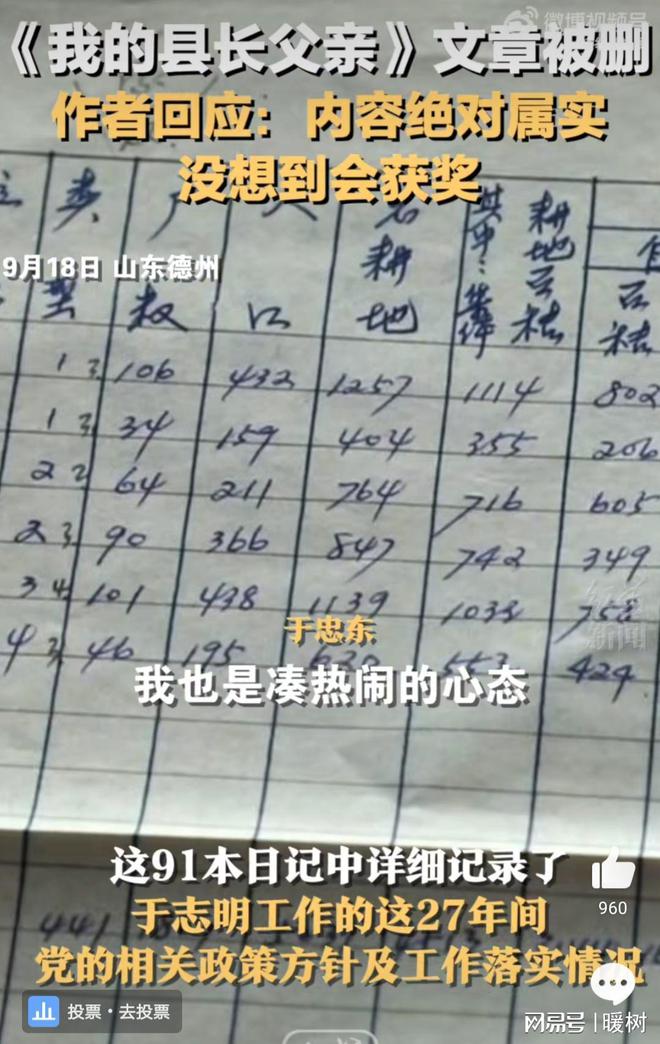 微博视频号
《我的县长父亲》文章被删
作者回应：内容绝对属实
没想到会获奖
9月18日 山东德州
类型 户数 人口 耕地 其中: 耕地 百秸
1 106 432 1257 1114 802
1 34 159 404 355 206
2 64 211 764 716 605
2 90 366 847 742 349
3 101 438 1139 1033 758
4 46 195 553 424
于忠东
我也是凑热闹的心态
新闻
这91本日记中详细记录了
于志明工作的这27年间
党的相关政策方针及工作落实情况
441
960
投票·去投票
网易号 | 暖树